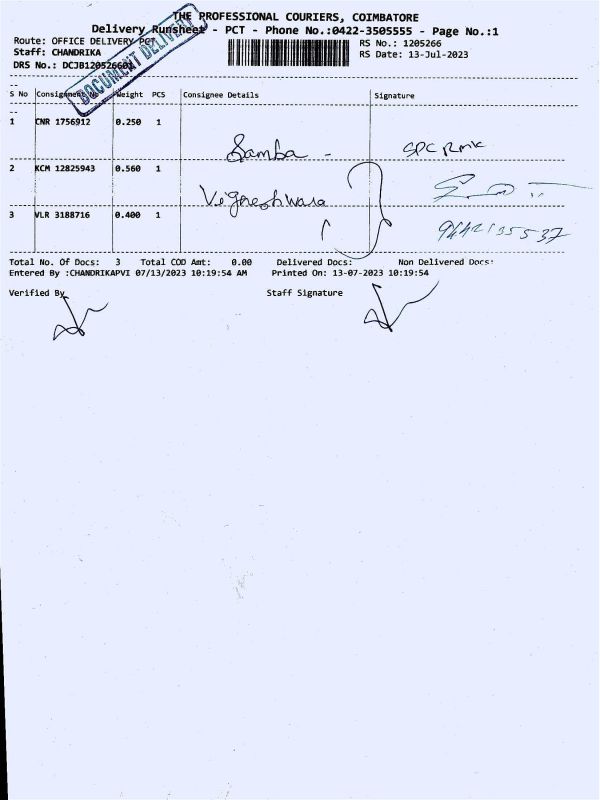 THE PROFESSIONAL COURIERS, COIMBATORE
Delivery Runsheet - PCT - Phone No.:0422-3505555 - Page No.:1
Route: OFFICE DELIVERY PCT
RS No.: 1205266
Staff: CHANDRIKA
RS Date: 13-Jul-2023
DRS No.: DCJB120526601
DOCUMENT DELIVERY
S No Consignment No Weight PCS Consignee Details Signature
1 CNR 1756912 0.250 1
Samba -
2 KCM 12825943 0.560 1
Vigneshwara
3 VLR 3188716 0.400 1
Total No. Of Docs: 3 Total COD Amt: 0.00 Delivered Docs: Non Delivered Docs:
Entered By :CHANDRIKAPVI 07/13/2023 10:19:54 AM Printed On: 13-07-2023 10:19:54
Verified By Staff Signature